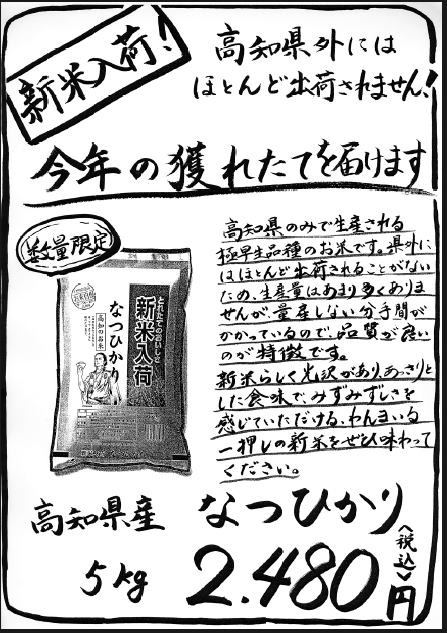 新米入荷!
高知県外には
ほとんど出荷されません!
今年の獲れたてを届けます
数量限定
高知県のみで生産される
極早生品種のお米です。県外に
はほとんど出荷されることがない
ため、生産量はあまり多くありま
せんが、量産しない分手間が
かかっているので、品質が良い
のが特徴です。
新米らしく光沢があり、あっさりと
した食味で、みずみずしさを
感じていただける、わんまいる
一押しの新米をぜひ味わって
ください。
とれたてのおいしさ
新米入荷
なつひかり
高知のお米
高知県産 なつひかり
5kg 2.480円
<税込>